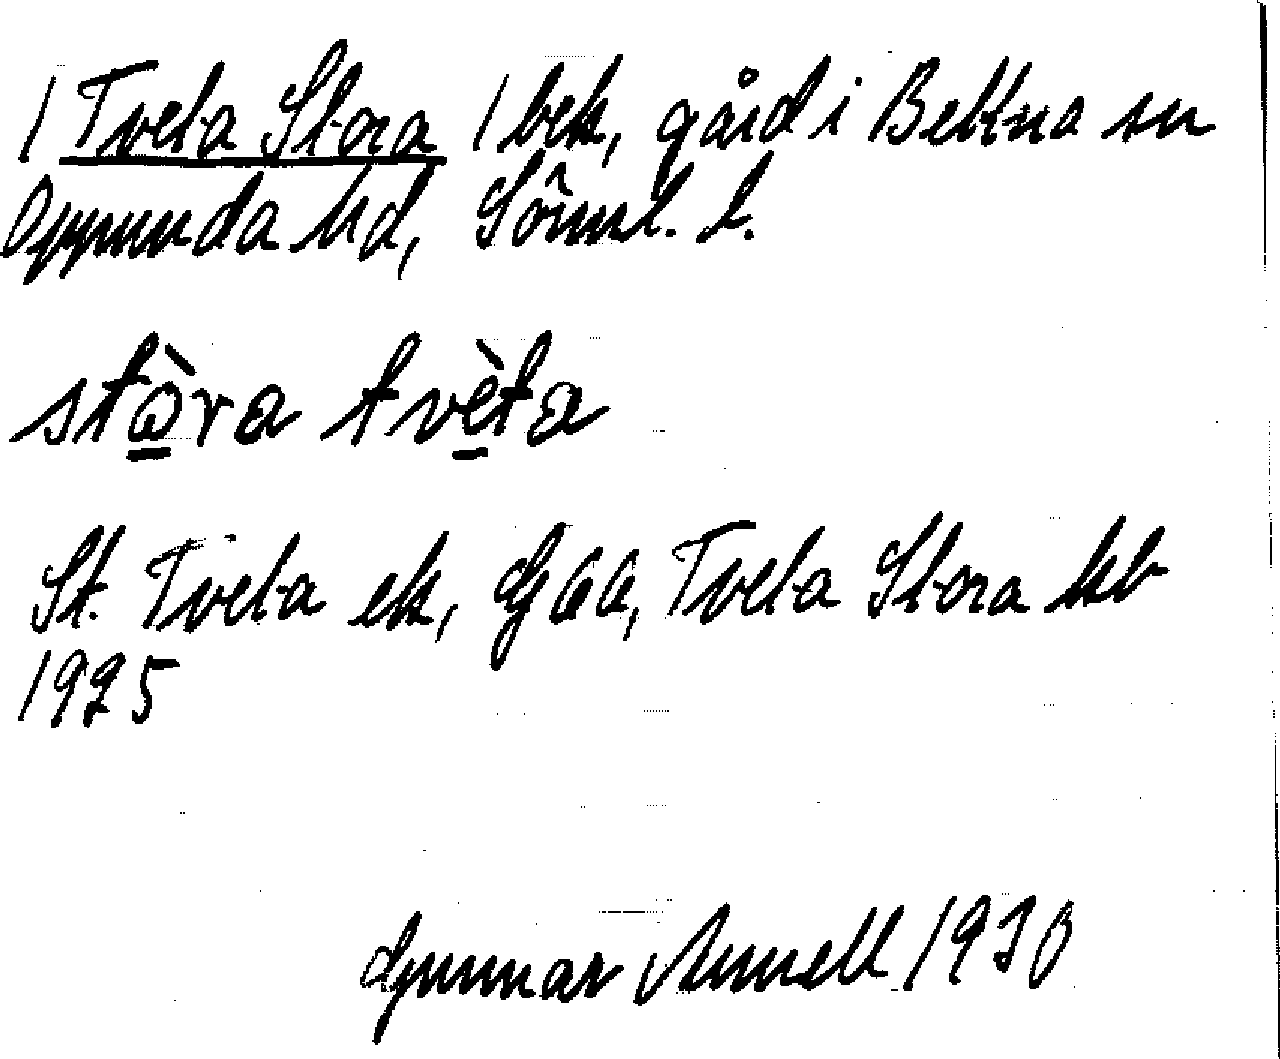 / Tveta Stora / bek, gård i Bettna sn
Oppunda hd, Söml. l.
stὼra tvèta
St. Tveta ek, GEK, Tveta Stora kb
1925
Gunnar 1930